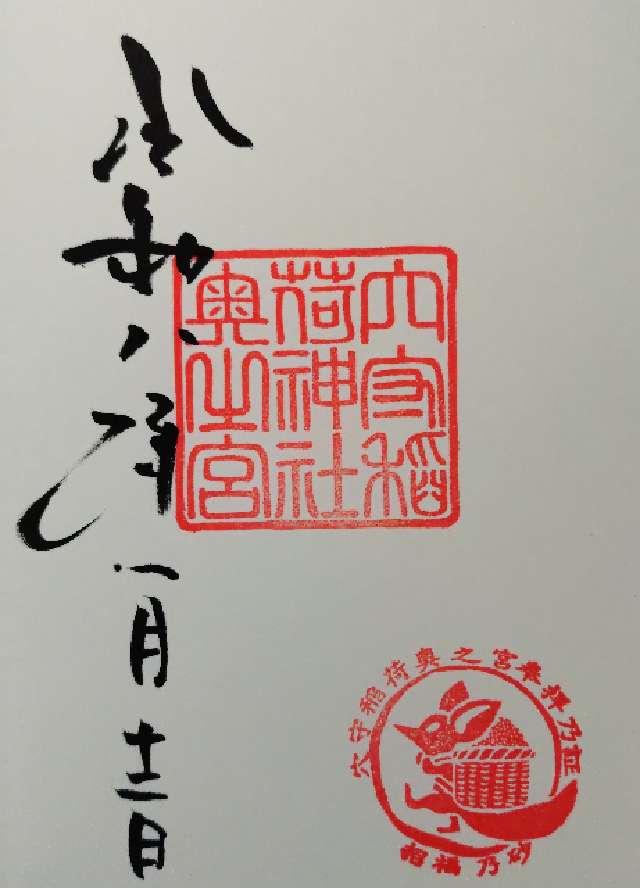 穴守稲
荷神社
奥之宮
令和八年一月十二日
穴守稲荷奥之宮奉拝乃証
招福乃砂